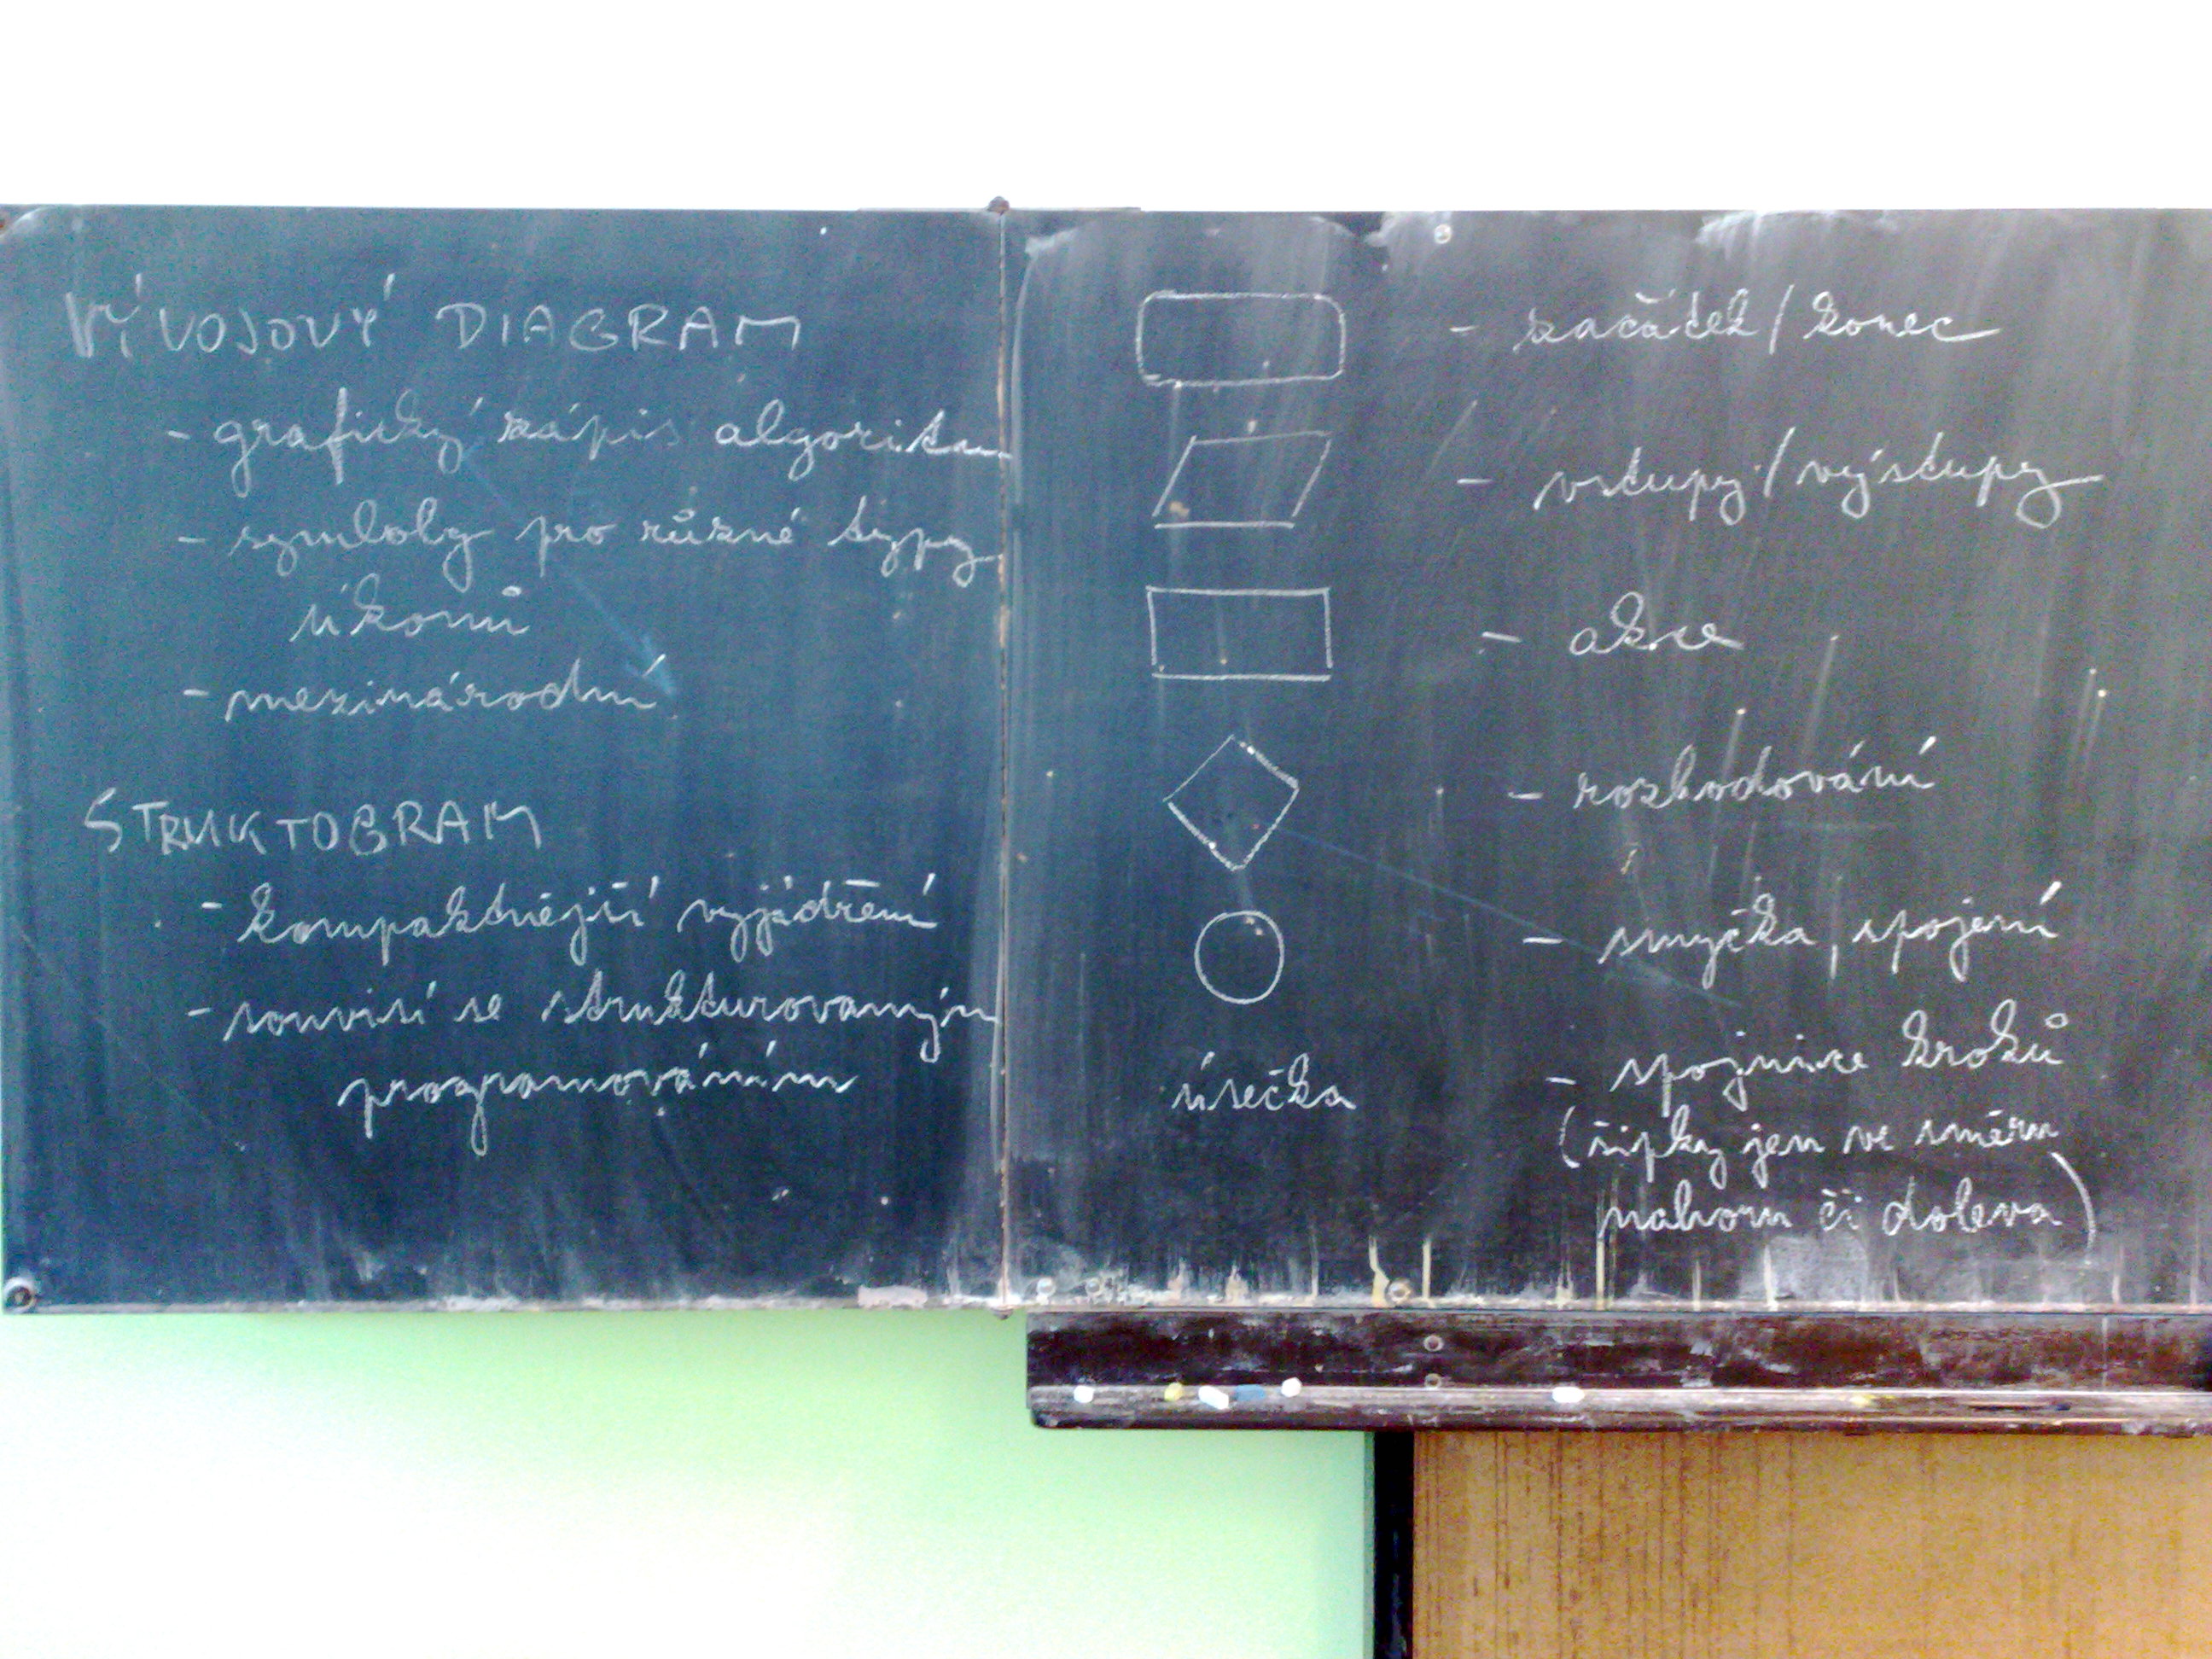 VÝVOJOVÝ DIAGRAM
- grafický zápis algoritmu
- symboly pro různé typy
úkonů
- mezinárodní
STRUKTOGRAM
- kompaktnější vyjádření
- souvisí se strukturovaným
programováním
- začátek/konec
- vstupy/výstupy
- akce
- rozhodování
- smyčka, spojení
úsečka - spojnice kroků
(šipky jen ve směru
nahoru či doleva)